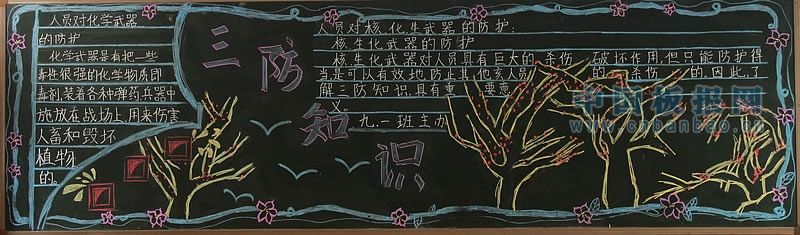 人员对化学武器
的防护
化学武器是有把一些
毒性很强的化学物质即
毒剂,装着各种弹药,兵器中
施放在战场上,用来伤害
人畜和毁坏
植物
的。
三防知识
人员对核、化、生武器的防护:
核生化武器的防护
核生化武器对人员具有巨大的杀伤 破坏作用,但只能防护得
当是可以有效地防止其他核人员 的 杀伤 的,因此,了
解三防知识,具有重 要意
义。
九.一班主办
中国板报网